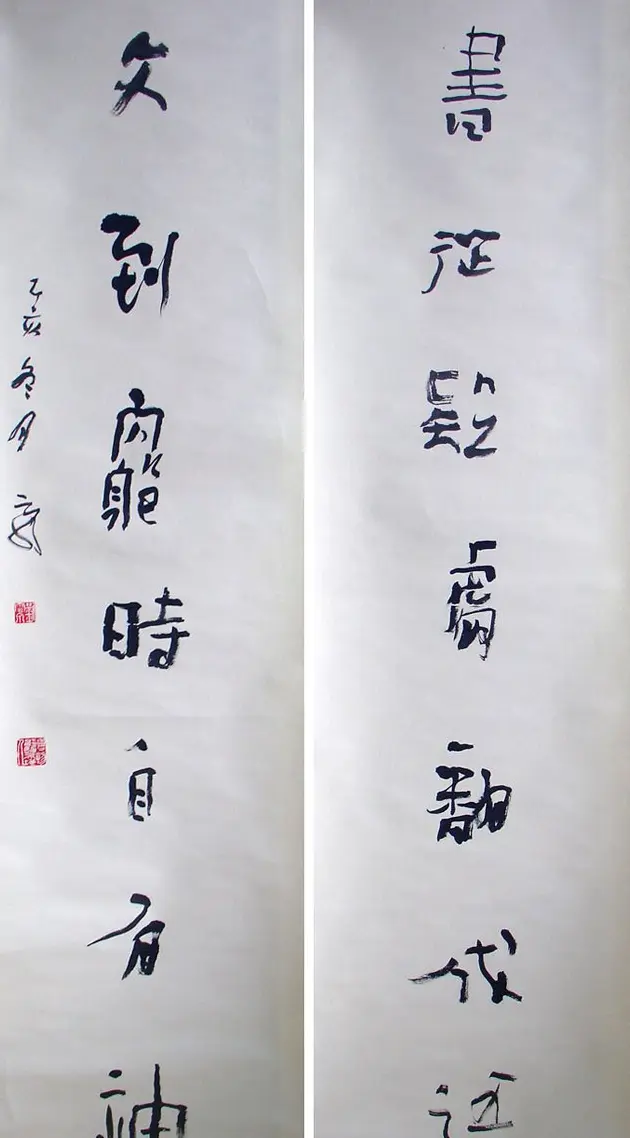 書從疑處翻成悟
文到窮時自有神
乙亥冬月